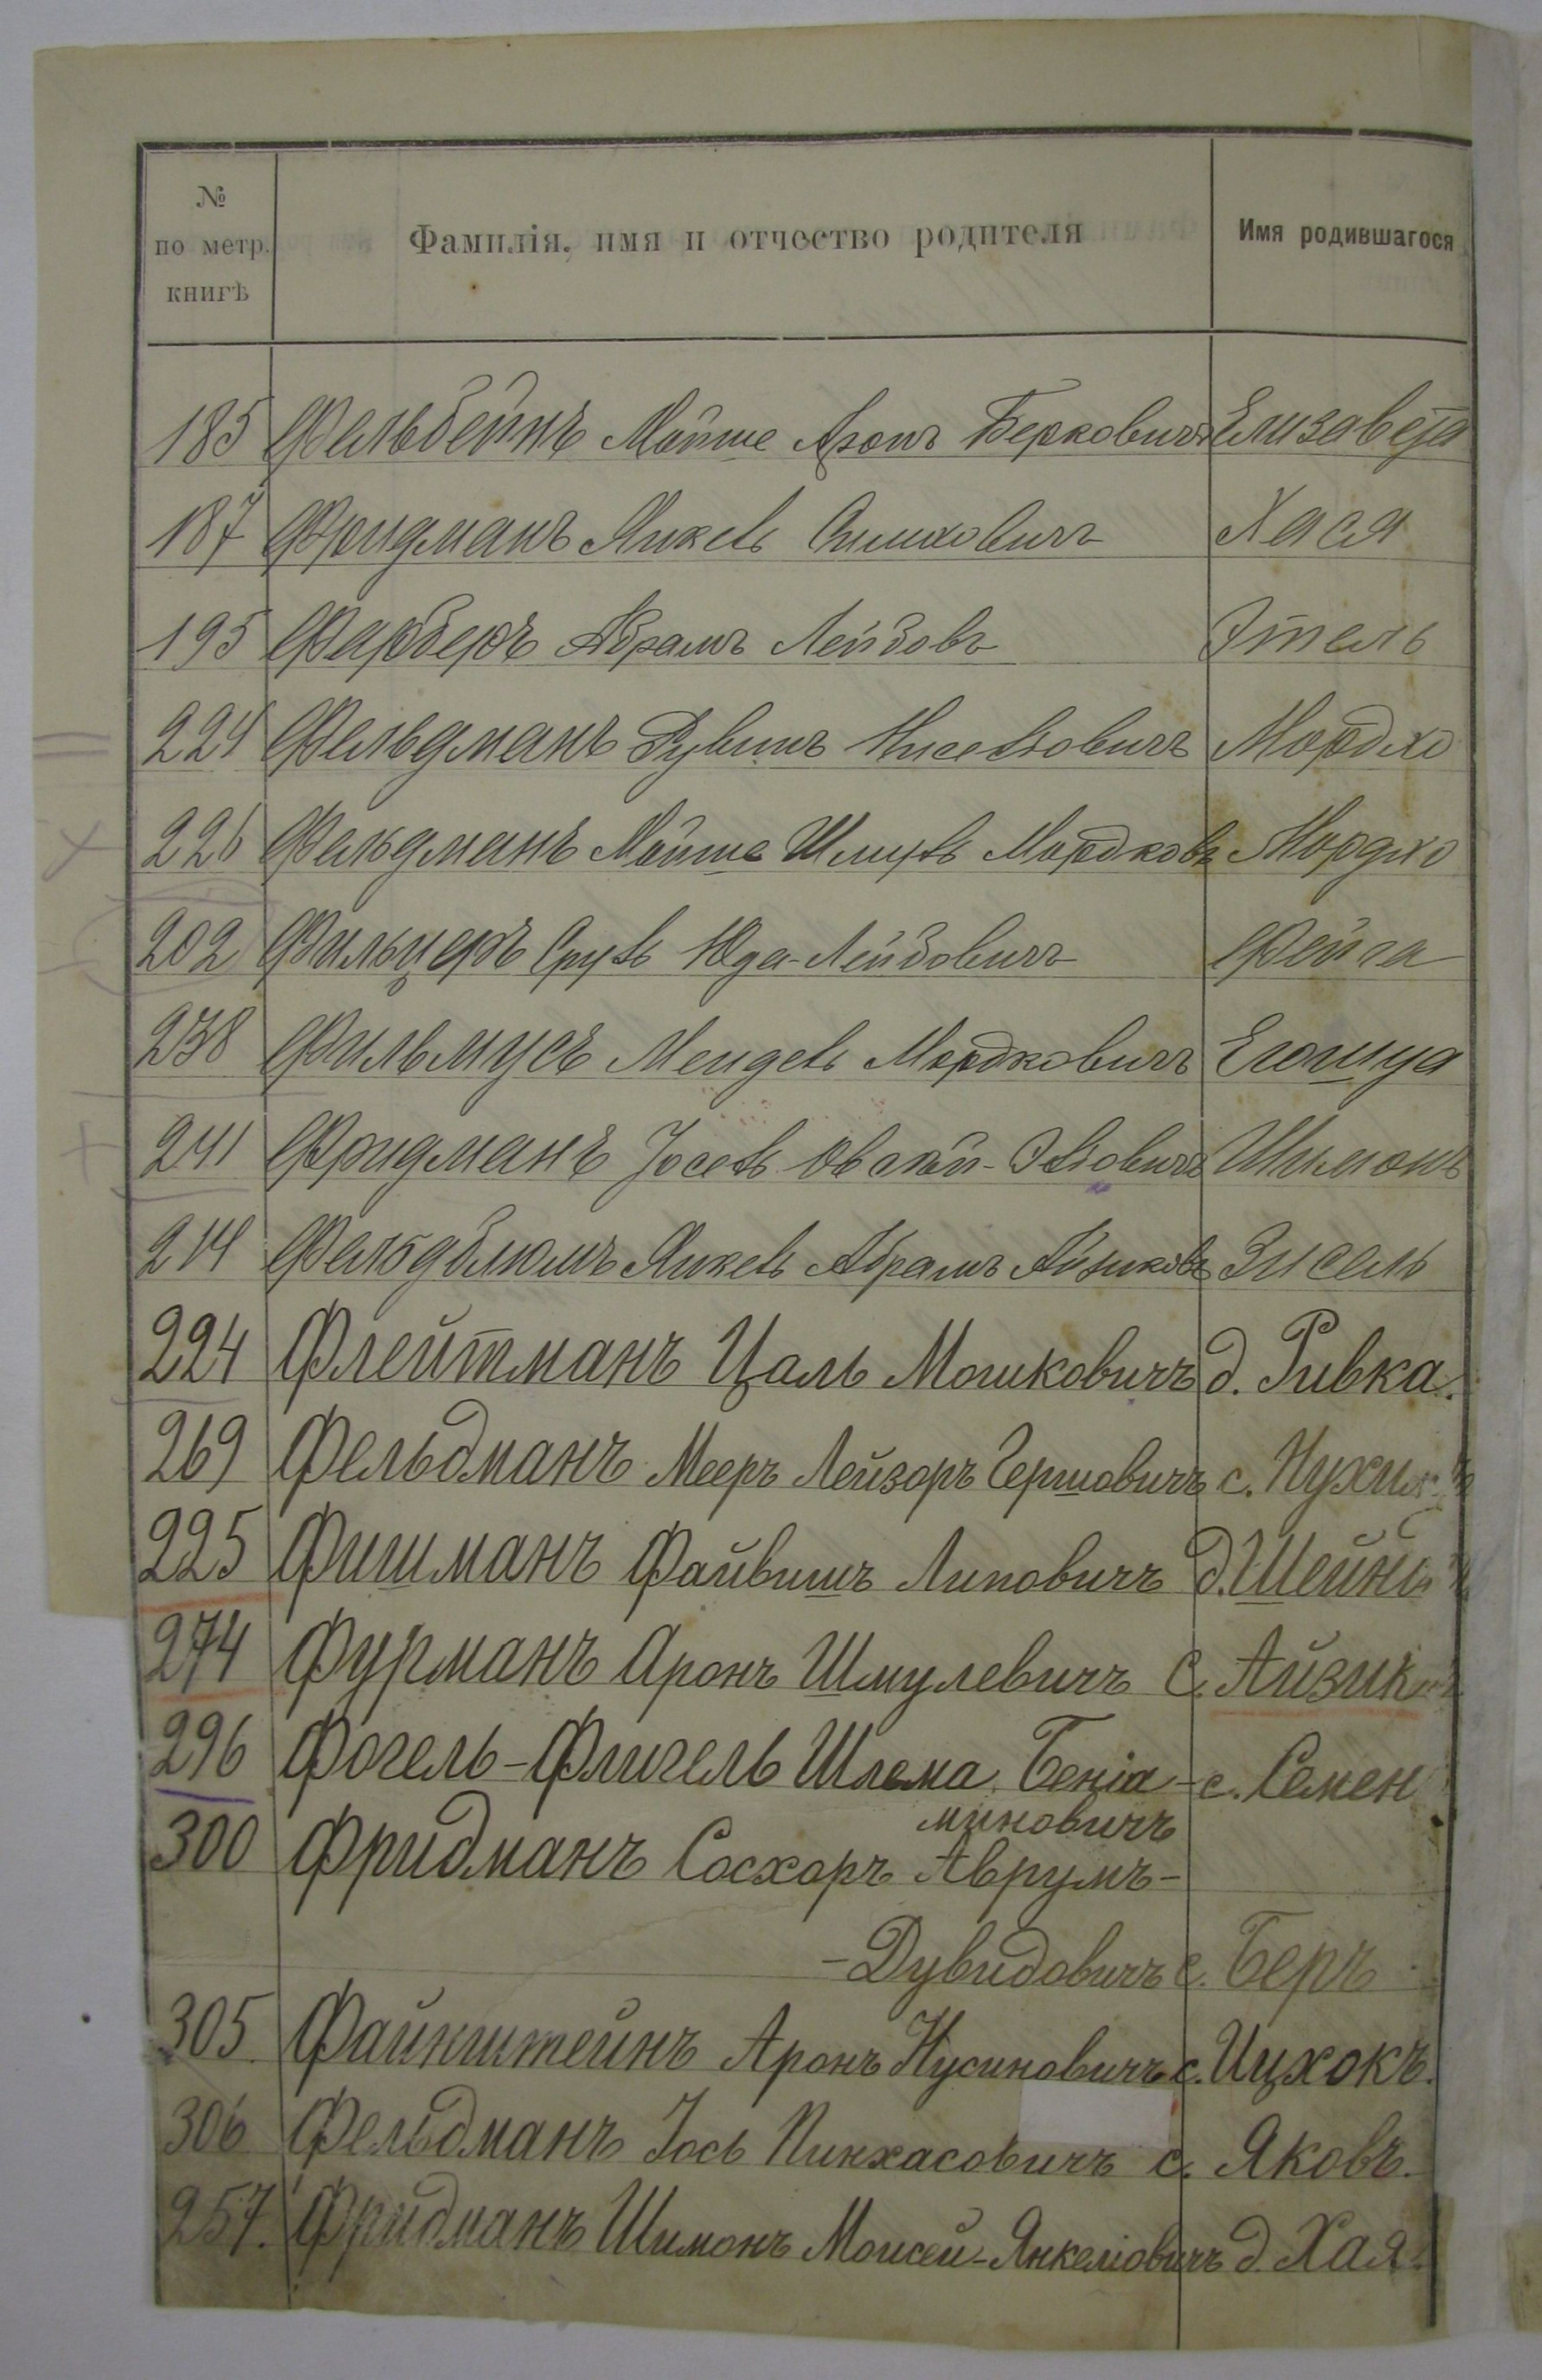 №
по метр.
книгѣ
Фамилія, имя и отчество родителя
Имя родившагося
185 Фельбейнъ Мойше Аронъ Берковичъ Елизавета
187 Фридманъ Янкель Симховичъ Хася
195 Фарберъ Абрамъ Лейбовъ Этель
224 Фельдманъ Рувинъ Мордхо
226 Фельдманъ Мойше Шмуль Мордковъ Мордхо
202 Фильцеръ Сруль Юда-Лейбовичъ Фейга
238 Фильмусъ Мендель Мордковичъ Егошуа
241 Фридманъ Іосель Овсѣй- Шимонъ
214 Фельдблюмъ Янкель Абрамъ Айзиковъ Зисель
224 Флейтманъ Цаль Мошковичъ д. Ривка.
269 Фельдманъ Мееръ Лейзоръ Гершовичъ с. Нухимъ
225 Фишманъ Файвишъ Липовичъ д. Шейня
274 Фурманъ Аронъ Шмулевичъ с. Айзикъ
296 Фогель-Флигель Шлема Беніа- с. Семен
миновичъ
300 Фридманъ Сосхоръ Аврумъ-
-Дувидовичъ с. Беръ
305 Файнштейнъ Аронъ Нусиновичъ с. Ицхокъ.
306 Фельдманъ Іось Пинхасовичъ с. Яковъ.
257. Фридманъ Шимонъ Моисей-Янкеліовичъ д. Хая.